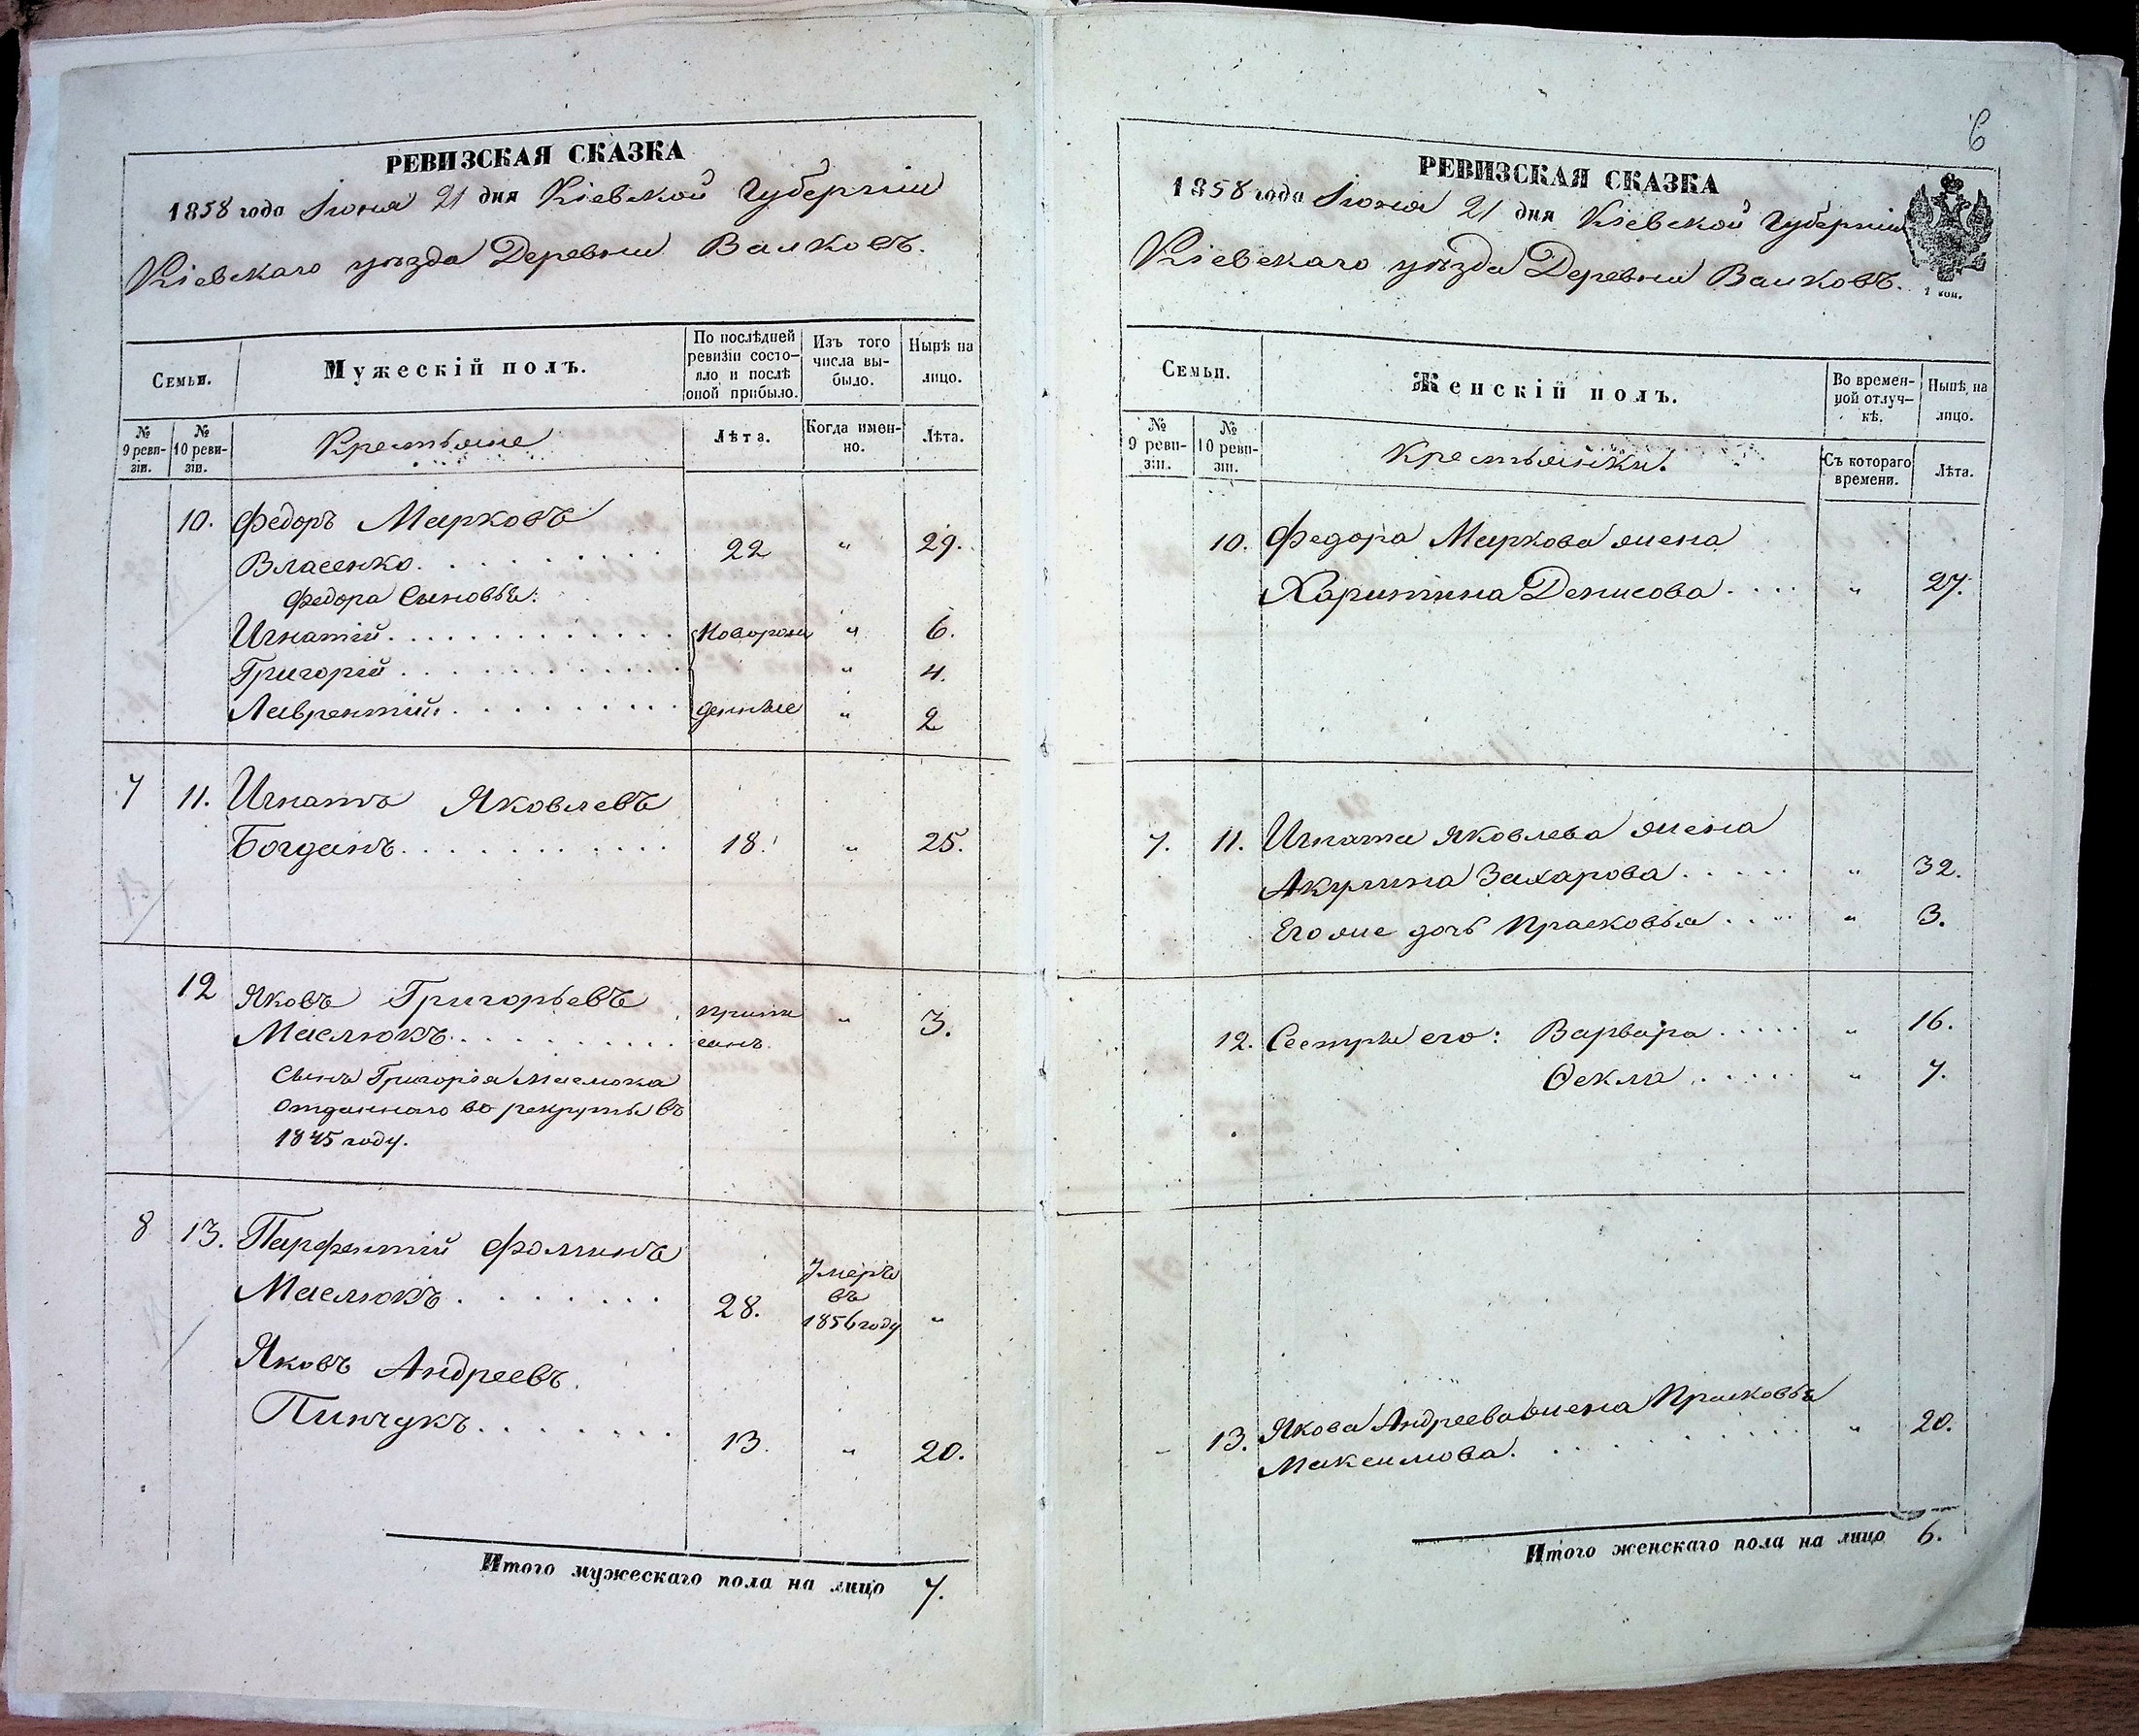 РЕВИЗСКАЯ СКАЗКА
1858 года Іюня 21 дня Кіевской Губерніи
Кіевскаго уѣзда Деревни Валковъ.
Семьи.
Мужескій полъ.
По послѣдней ревизіи состояло и послѣ оной прибыло.
Изъ того числа выбыло.
Нынѣ на лицо.
№ 9 ревизіи.
№ 10 ревизіи.
Крестьяне
Лѣта.
Когда именно.
Лѣта.
10. Федоръ Марковъ
Власенко. 22 " 29.
Федора Сыновья:
Игнатій. новорож " 6.
Григорій. " 4.
Лаврентій. денные " 2
7 11. Игнатъ Яковлевъ
Богданъ. 18. " 25.
12 Яковъ Григорьевъ
Маслюкъ. приписанъ " 3.
Сынъ Григорія Маслюка
отданного въ рекруты въ
1845 году.
8 13. Парфентій Фоминъ
Маслюкъ. 28. Умеръ въ 1856 году "
Яковъ Андреевъ
Пинчукъ. 13. " 20.
Итого мужескаго пола на лицо 7.
6
РЕВИЗСКАЯ СКАЗКА
1858 года Іюня 21 дня Кіевской Губерніи
Кіевскаго уѣзда Деревни Валковъ.
1 коп.
Семьи.
Женскій полъ.
Во временной отлучкѣ.
Нынѣ на лицо.
№ 9 ревизіи.
№ 10 ревизіи.
Крестьянки.
Съ котораго времени.
Лѣта.
10. Федора Маркова жена
Харитина Денисова. " 27.
7. 11. Игната Яковлева жена
Акулина Захарова. " 32.
Его же дочь Прасковья. " 3.
12. Сестры его: Варвара. " 16.
Ѳекла. " 7.
13. Якова Андреева жена Прасковья
Максимова. " 20.
Итого женскаго пола на лицо 6.